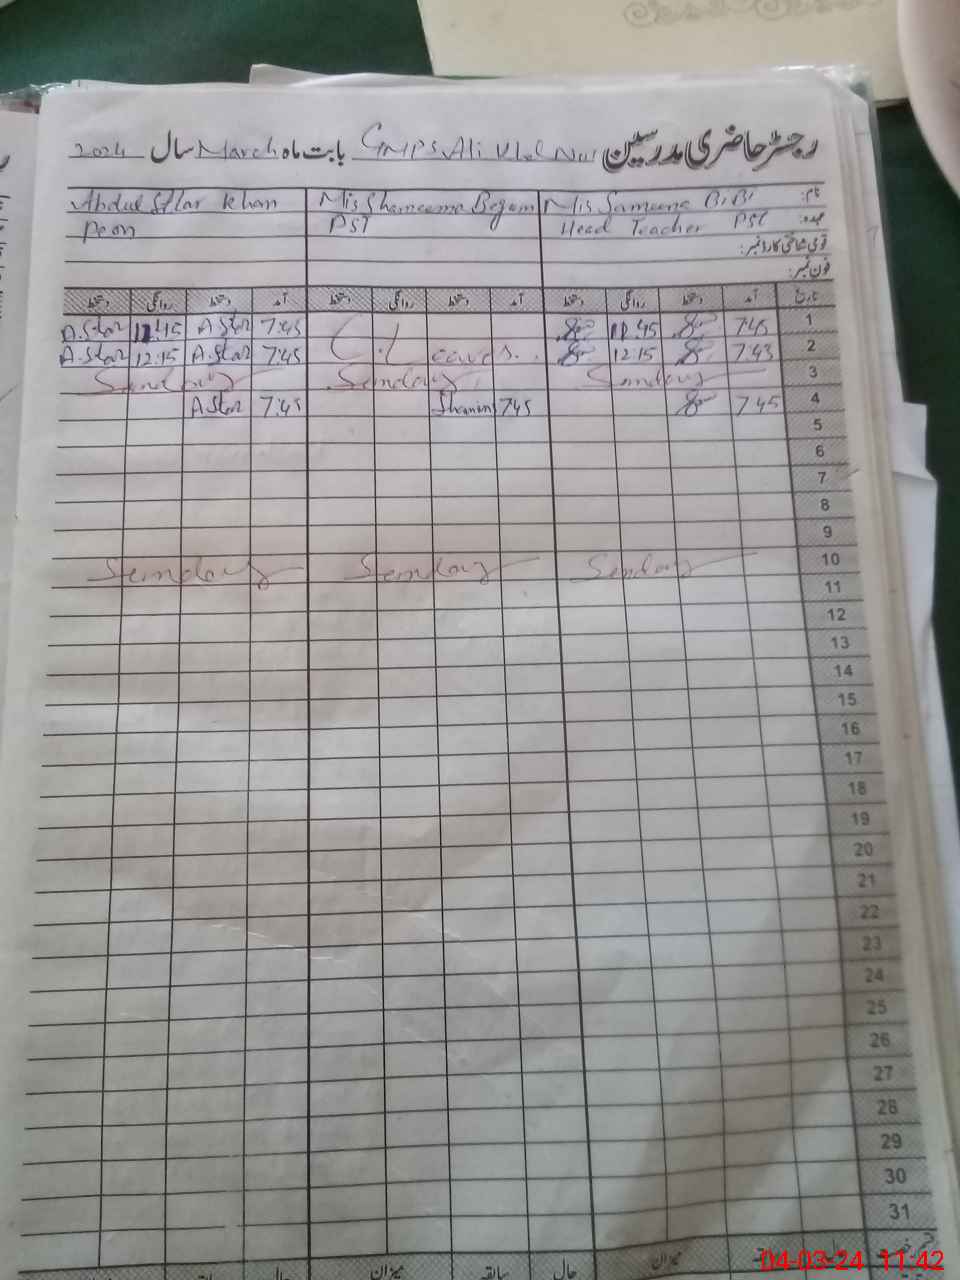 رجسٹر حاضری مدرسین GMPS Ali Vlel Nur بابت ماہ March سال 2024
نام: Mis Sameena BiBi Mis Shameema Begam Abdul Sttar Khan
عہدہ: Head Teacher PST PST Peon
قومی شناختی کارڈ نمبر:
فون نمبر:
تاریخ آمد دستخط روانگی دستخط آمد دستخط روانگی دستخط آمد دستخط روانگی دستخط
1 7:45 11:45 7:45 A.Star 11:45 A.Star
2 7:43 12:15 C.L Leaves.. 7:45 A.Star 12:15 A.Star
3 Sunday Sunday Sunday
4 7:45 7:45 Shamim 7:45 A.Star
5
6
7
8
9
10 Sunday Sunday Sunday
11
12
13
14
15
16
17
18
19
20
21
22
23
24
25
26
27
28
29
30
31
میزان سابقہ حال میزان
04-03-24 11:42